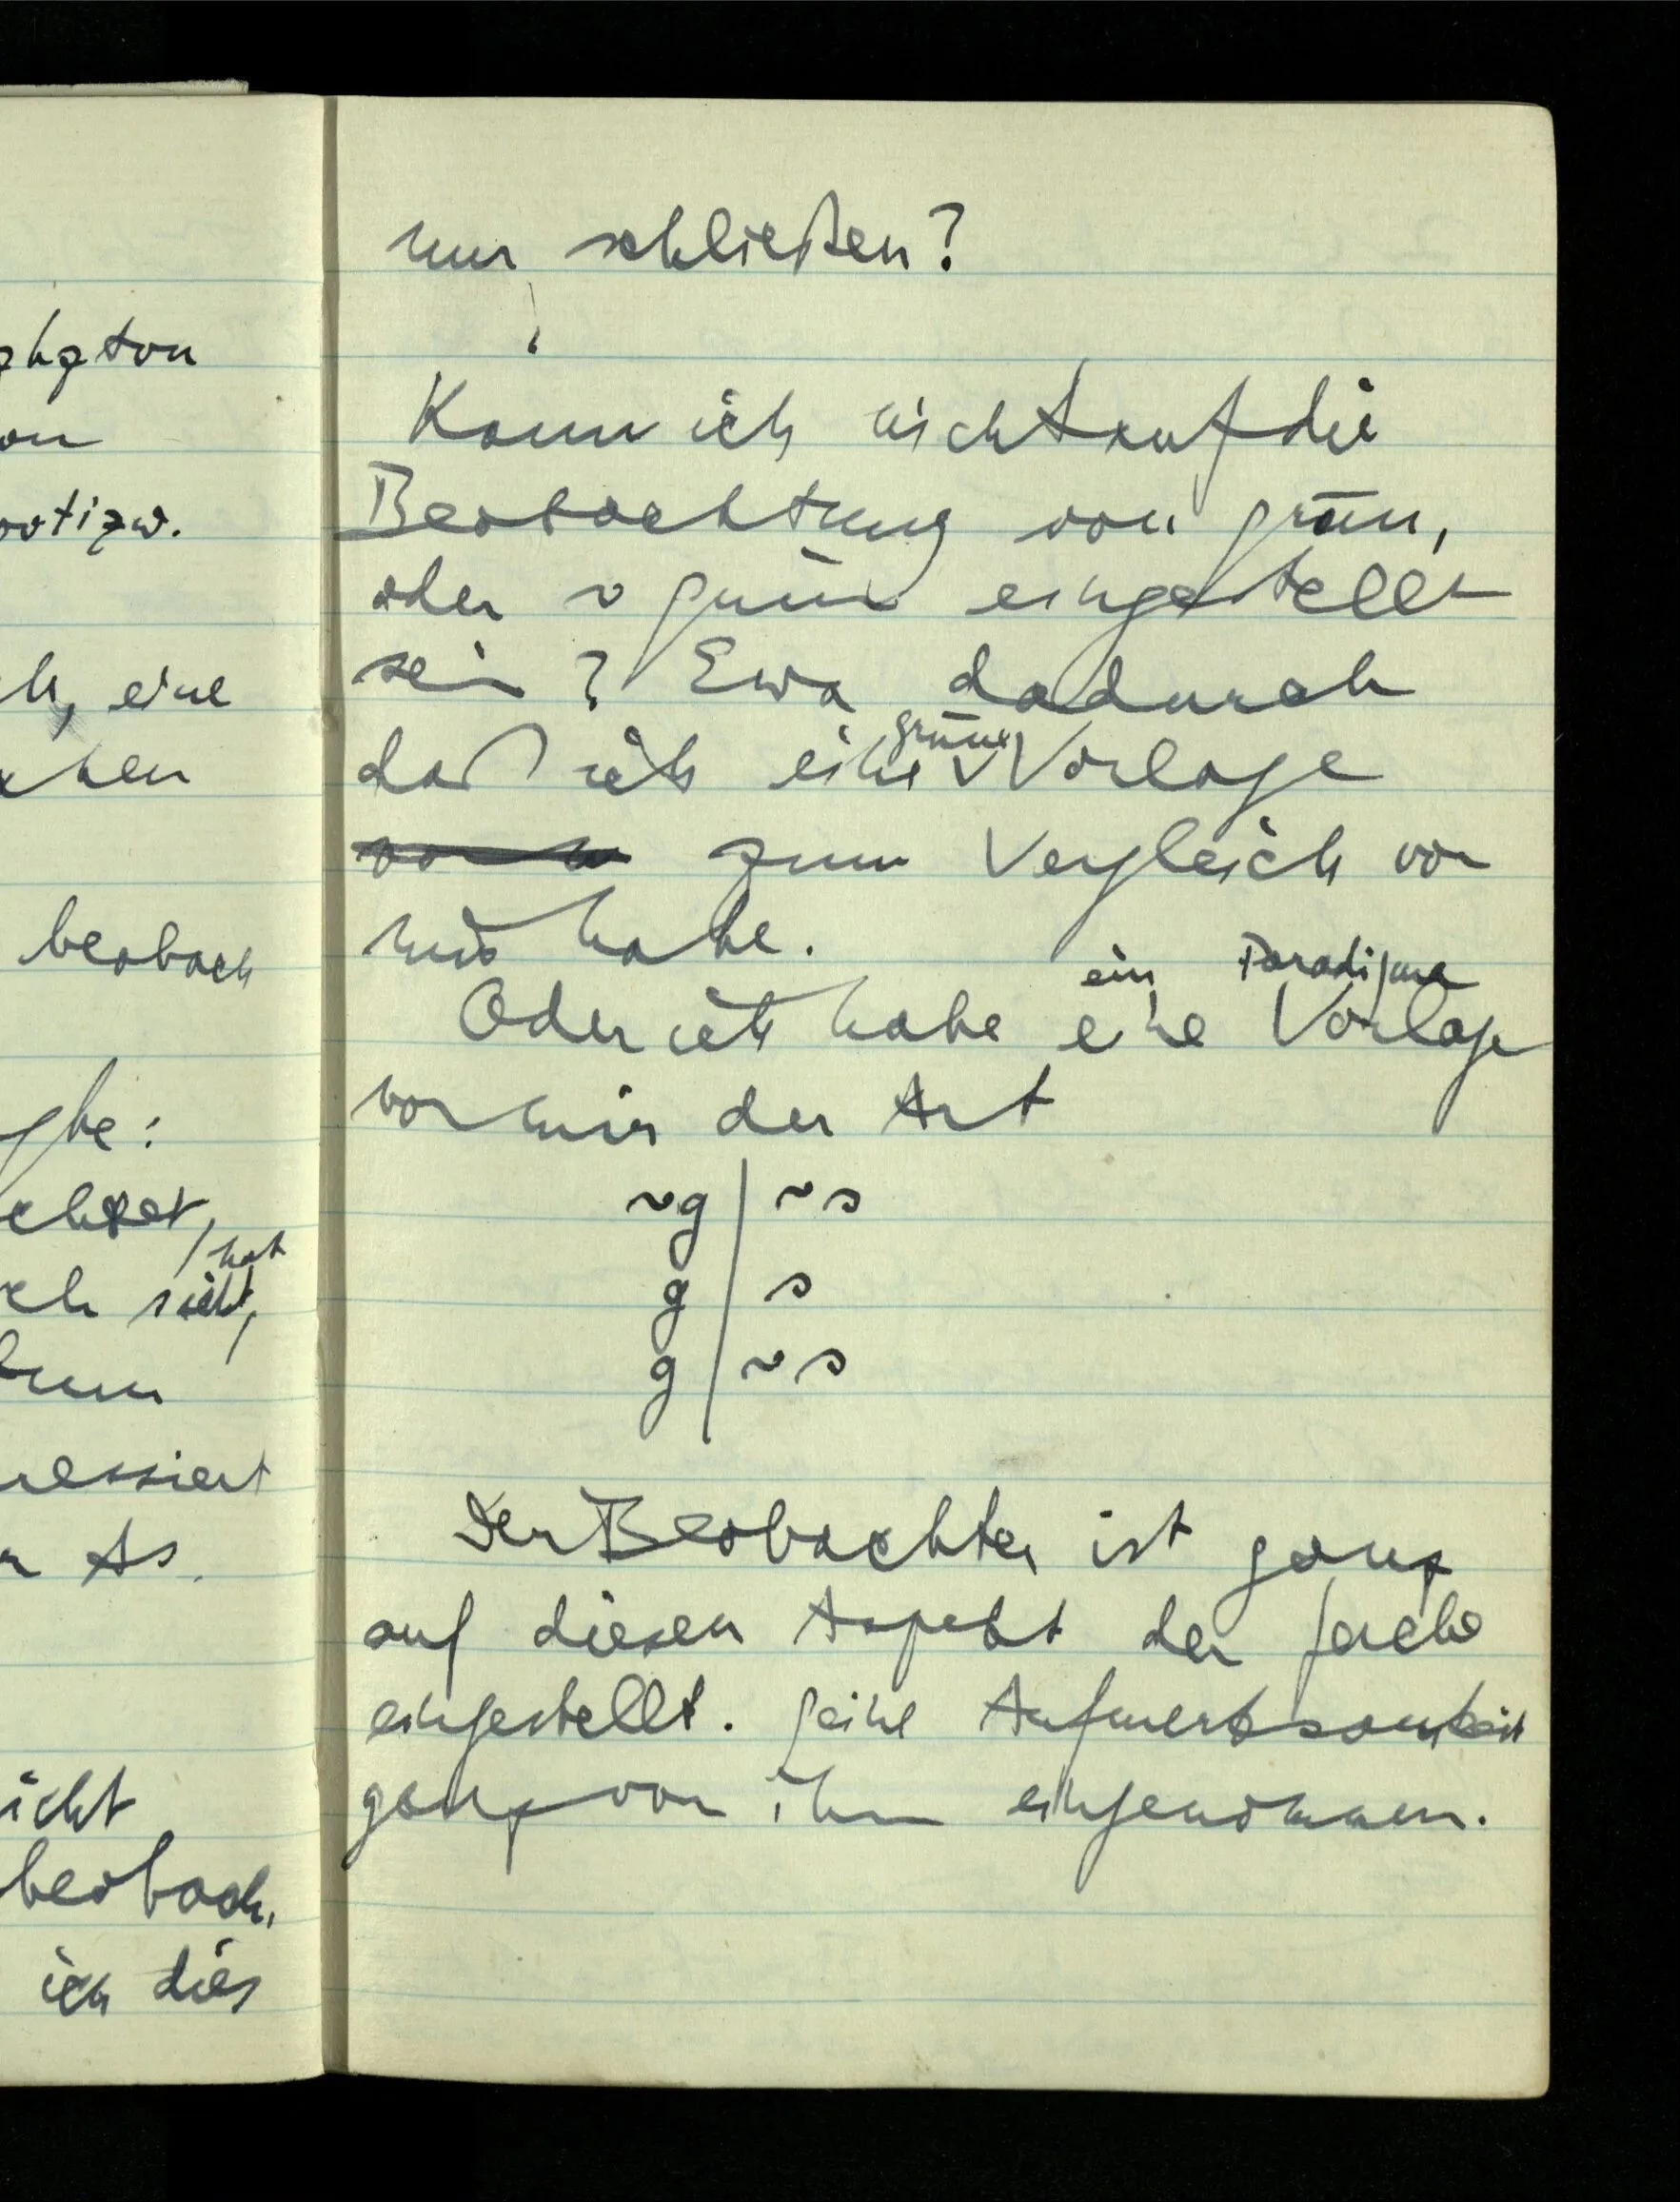 nur schließen?
Kann ich nicht auf die
Beobachtung von grün,
oder ~ grün eingestellt
sein? Etwa dadurch
daß ich eine grüne Vorlage
zum Vergleich vor
mir habe.
ein Paradigma
Oder ich habe eine Vorlage
vor mir der Art
~g | ~s
g | s
g | ~s
Der Beobachter ist ganz
auf diesen Aspekt der Sache
eingestellt. Seine Aufmerksamkeit
ganz von ihm eingenommen.
von
h, eine
beobach
hat
sieht,
ressiert
beobach.
ich dies